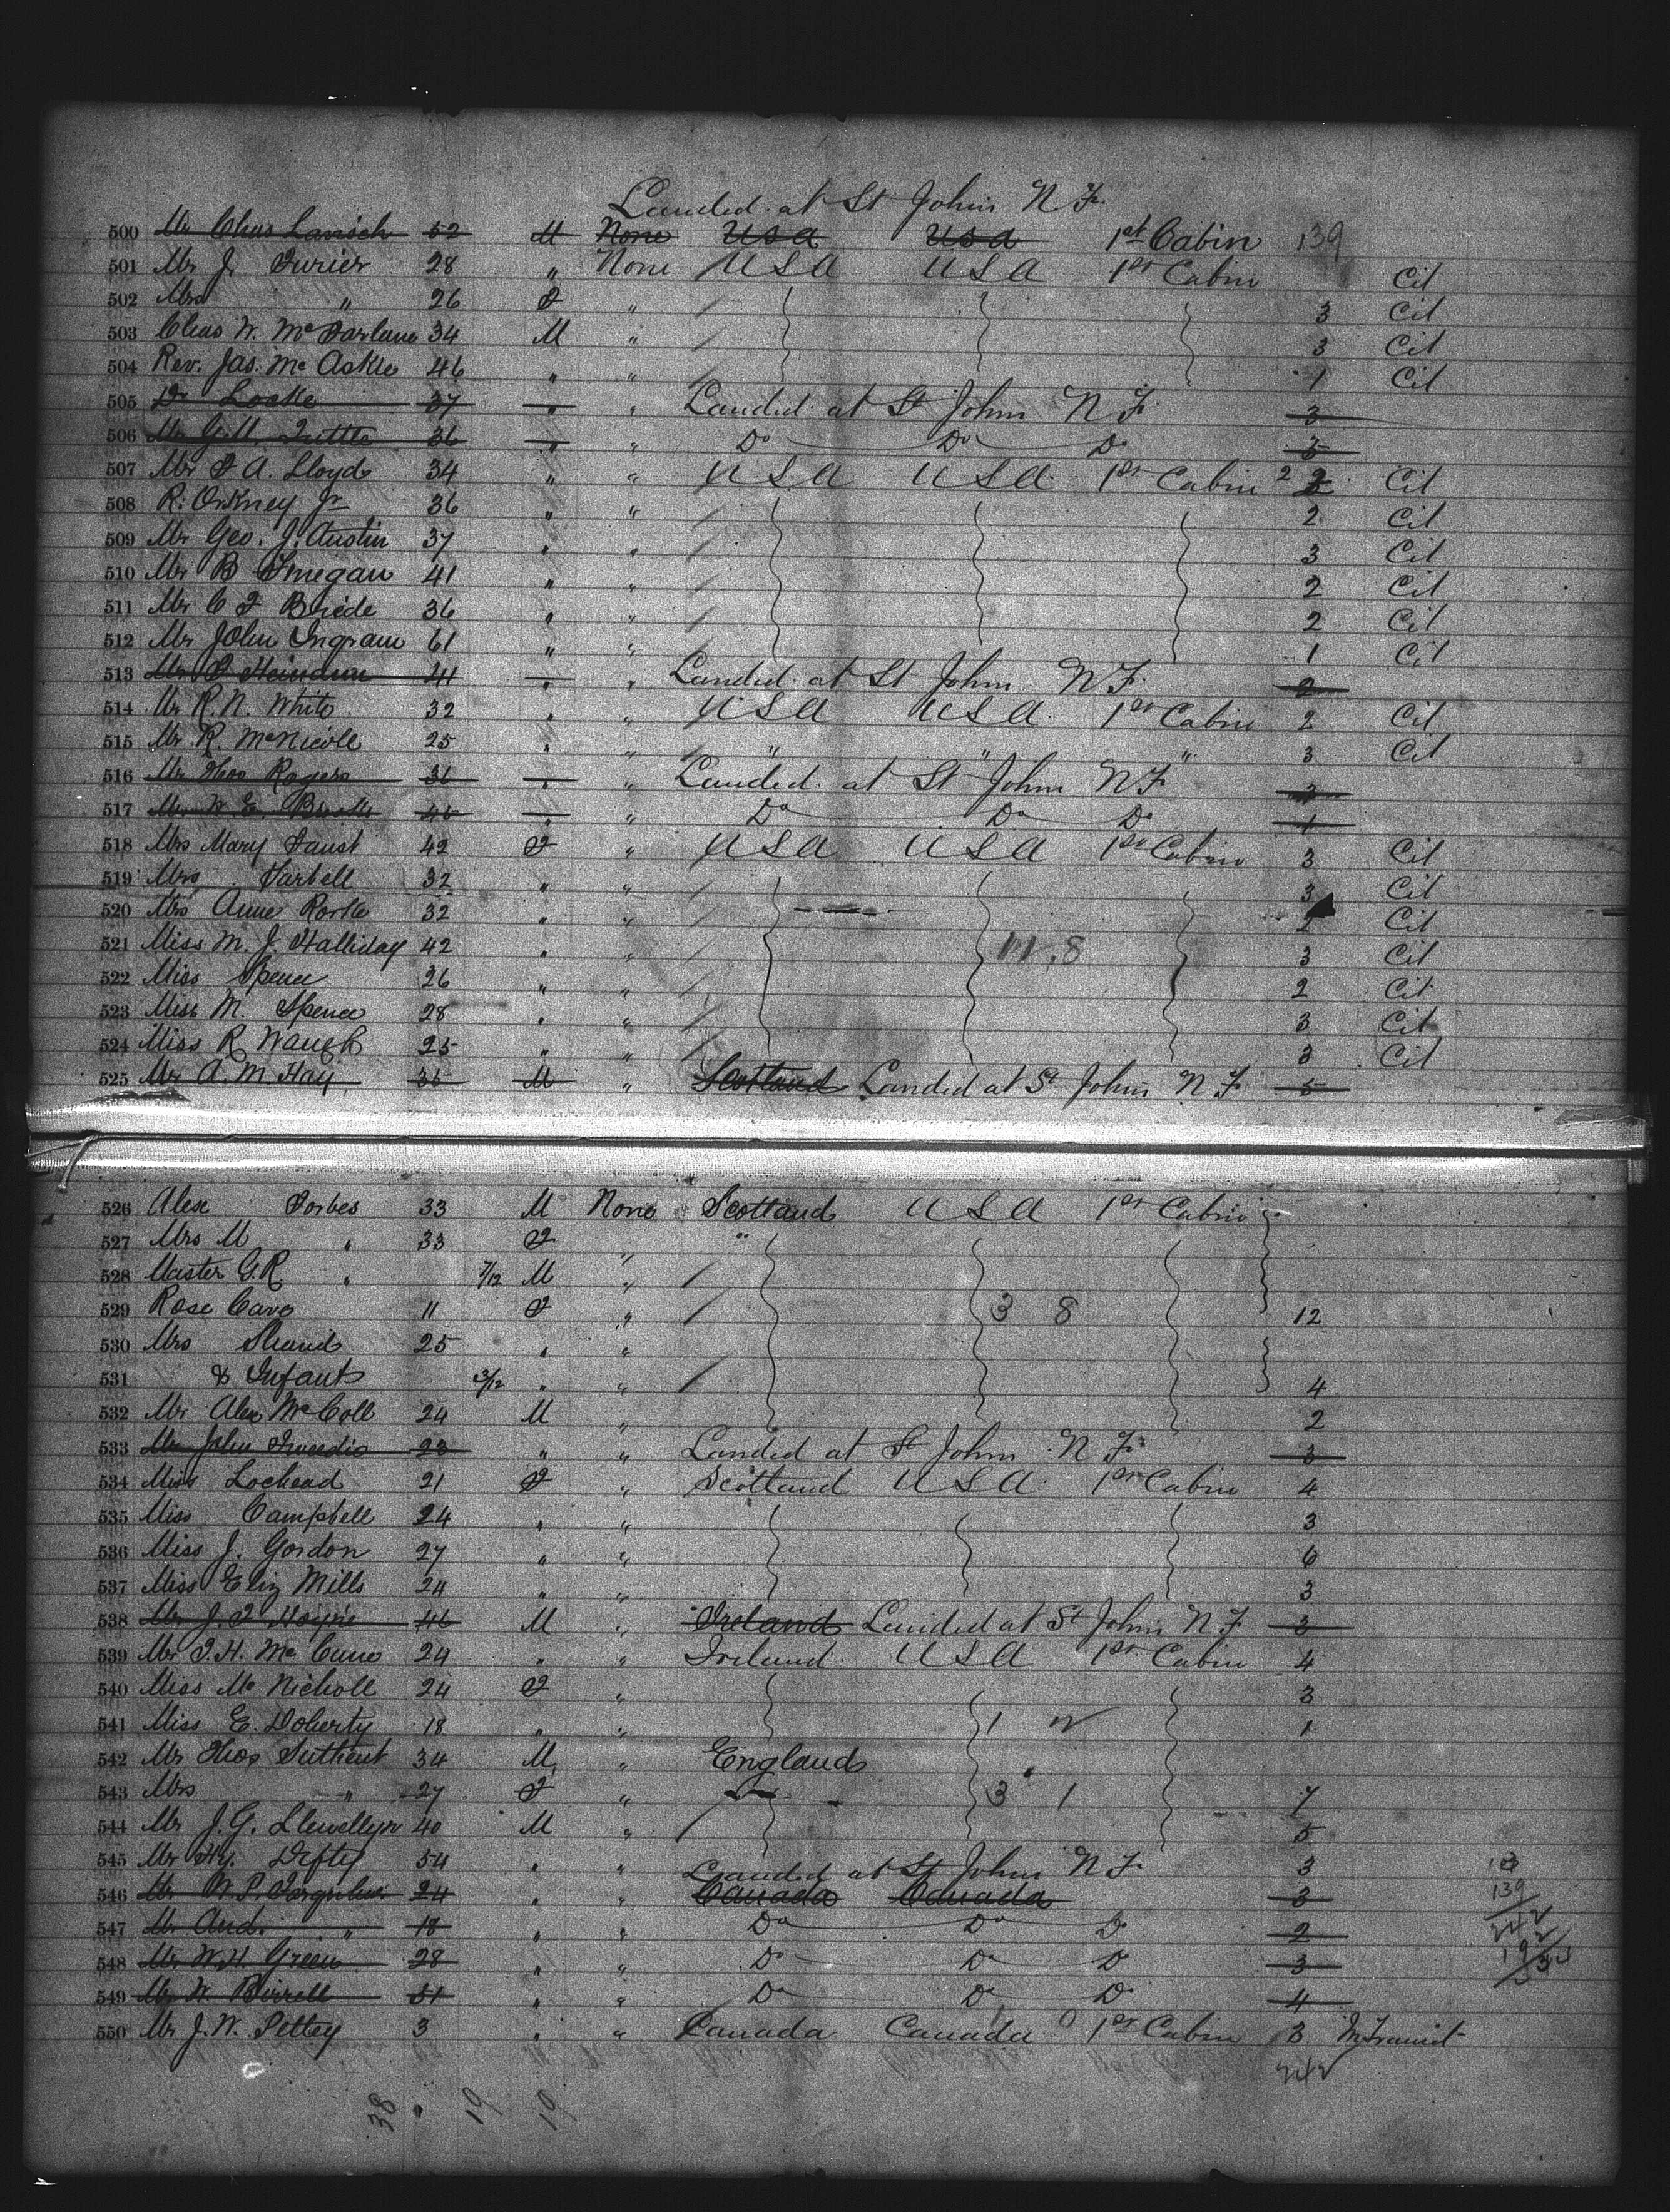 Landed at St John's N. F.
500 Mr Chas 52 M None USA USA 1st Cabin 139
501 Mr J. 28 " None USA USA 1st Cabin Cit
502 Mrs " 26 F " 3 Cit
503 Chas W. McFarlane 34 M " 3 Cit
504 Rev. Jas. McAskie 46 " " 1 Cit
505 Dr Locke 37 " " Landed at St John N F. 3
506 Mr G. M. Tuttle 36 " " Do Do Do 3
507 Mr F A. Lloyd 34 " " USA USA 1st Cabin 2 Cit
508 R. Orkney Jr 36 " " 2 Cit
509 Mr Geo. J. Austin 37 " " 3 Cit
510 Mr B Finegan 41 " " 2 Cit
511 Mr C F Briede 36 " " 2 Cit
512 Mr John Ingram 61 " " 1 Cit
513 Mr 41 " " Landed at St John N F. 2
514 Mr R. N. White 32 " " USA USA 1st Cabin 2 Cit
515 Mr R. McNicoll 25 " " " " " 3 Cit
516 Mr Thos Rogers 36 " " Landed at St John N F 3
517 Mr W. E. 45 " " Do Do Do 1
518 Mrs Mary Faust 42 F " USA USA 1st Cabin 3 Cit
519 Mrs Tarbell 32 " " 3 Cit
520 Mrs Anne Rorke 32 " " Cit
521 Miss M. J. Halliday 42 " " 3 Cit
522 Miss Spence 26 " " 2 Cit
523 Miss M. Spence 28 " " 3 Cit
524 Miss R Waugh 25 " " 3 Cit
525 Mr A. M Hay 35 M " Scotland Landed at St John's N F 5
526 Alex Forbes 33 M None Scotland USA 1st Cabin
527 Mrs M " 33 F " "
528 Master G. R " 7/12 M "
529 Rose Cave 11 F " 3 8 12
530 Mrs Shand 25 " "
531 & Infant 3/12 " " 4
532 Mr Alex McColl 24 M " 2
533 Mr John Tweedie 23 " " Landed at St John N F. 3
534 Miss Lochead 21 F " Scotland USA 1st Cabin 4
535 Miss Campbell 24 " " 3
536 Miss J. Gordon 27 " " 6
537 Miss Eliz Mills 24 " " 3
538 Mr J. F. 46 M " Ireland Landed at St John N F 3
539 Mr T. H. McCune 24 " " Ireland USA 1st Cabin 4
540 Miss McNicholl 24 F " 3
541 Miss E. Doherty 18 " " 1 1
542 Mr Thos 34 M " England
543 Mrs " 27 F " 3 1 7
544 Mr J. G. Llewellyn 40 M " 5
545 Mr Hy. Defty 54 " " 3
Landed at St John N F
546 Mr W. P. Farquhar 24 " " Canada Canada 3 139
547 Mr And. " 18 " " Do Do Do 2 242
548 Mr W. H. Green 28 " " Do Do Do 3
549 Mr W. Birrell 51 " " Do Do Do 4
550 Mr J. W. Pettey 3 " " Canada Canada 1st Cabin 3 In Transit
242
38 19 19